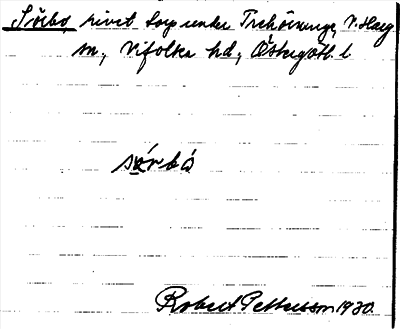 Sörbo, rivet torp under Trehörninge, V. Harg
sn., Vifolka hd, Östergötl. l.
sørbó
Robert Pettersson 1930.